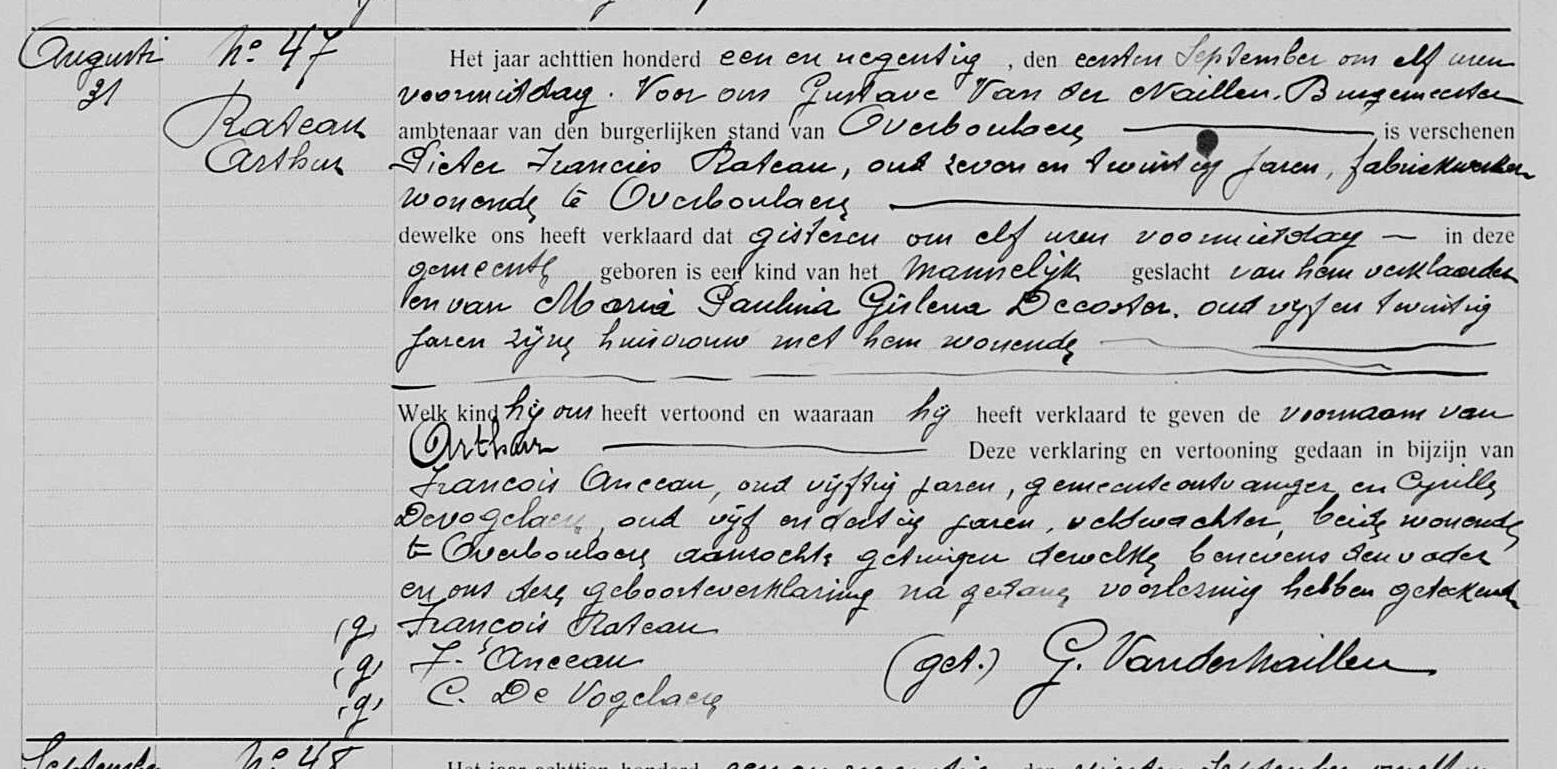 Augusti
31
No 47
Rateau
Arthur
Het jaar achttien honderd een en negentig, den eersten September om elf uren
voormiddag. Voor ons Gustave Van der Naillen. Burgemeester
ambtenaar van den burgerlijken stand van Overboulaere is verschenen
Pieter Francies Rateau, oud zeven en twintig jaren, fabriekwerker
wonende te Overboulaere
dewelke ons heeft verklaard dat gisteren om elf uren voormiddag — in deze
gemeente geboren is een kind van het mannelijk geslacht van hem verklaarder
en van Maria Paulina Gislena Decoster. oud vijf en twintig
jaren zijne huisvrouw met hem wonende
Welk kind hij ons heeft vertoond en waaraan hij heeft verklaard te geven de voornaam van
Arthur Deze verklaring en vertooning gedaan in bijzijn van
Francois Anceau, oud vijftig jaren, gemeenteontvanger en Cyrille
Devogelaere, oud vijf en dertig jaren, veldwachter, beide wonende
te Overboulaere aanzochte getuigen dewelke benevens den vader
en ons deze geboorteverklaring na gedane voorlezing hebben geteekend
(g) François Rateau
(g) F. Anceau (get.) G. Vanderhaillen
(g) C. De Vogelaere
September No 48
Het jaar achttien honderd een en negentig, den September